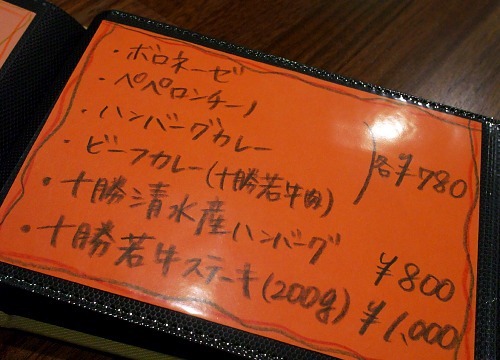 ・ボロネーゼ
・ペペロンチーノ
・ハンバーグカレー
・ビーフカレー(十勝若牛肉) 各¥780
・十勝清水産ハンバーグ ¥800
・十勝若牛ステーキ(200g) ¥1,000